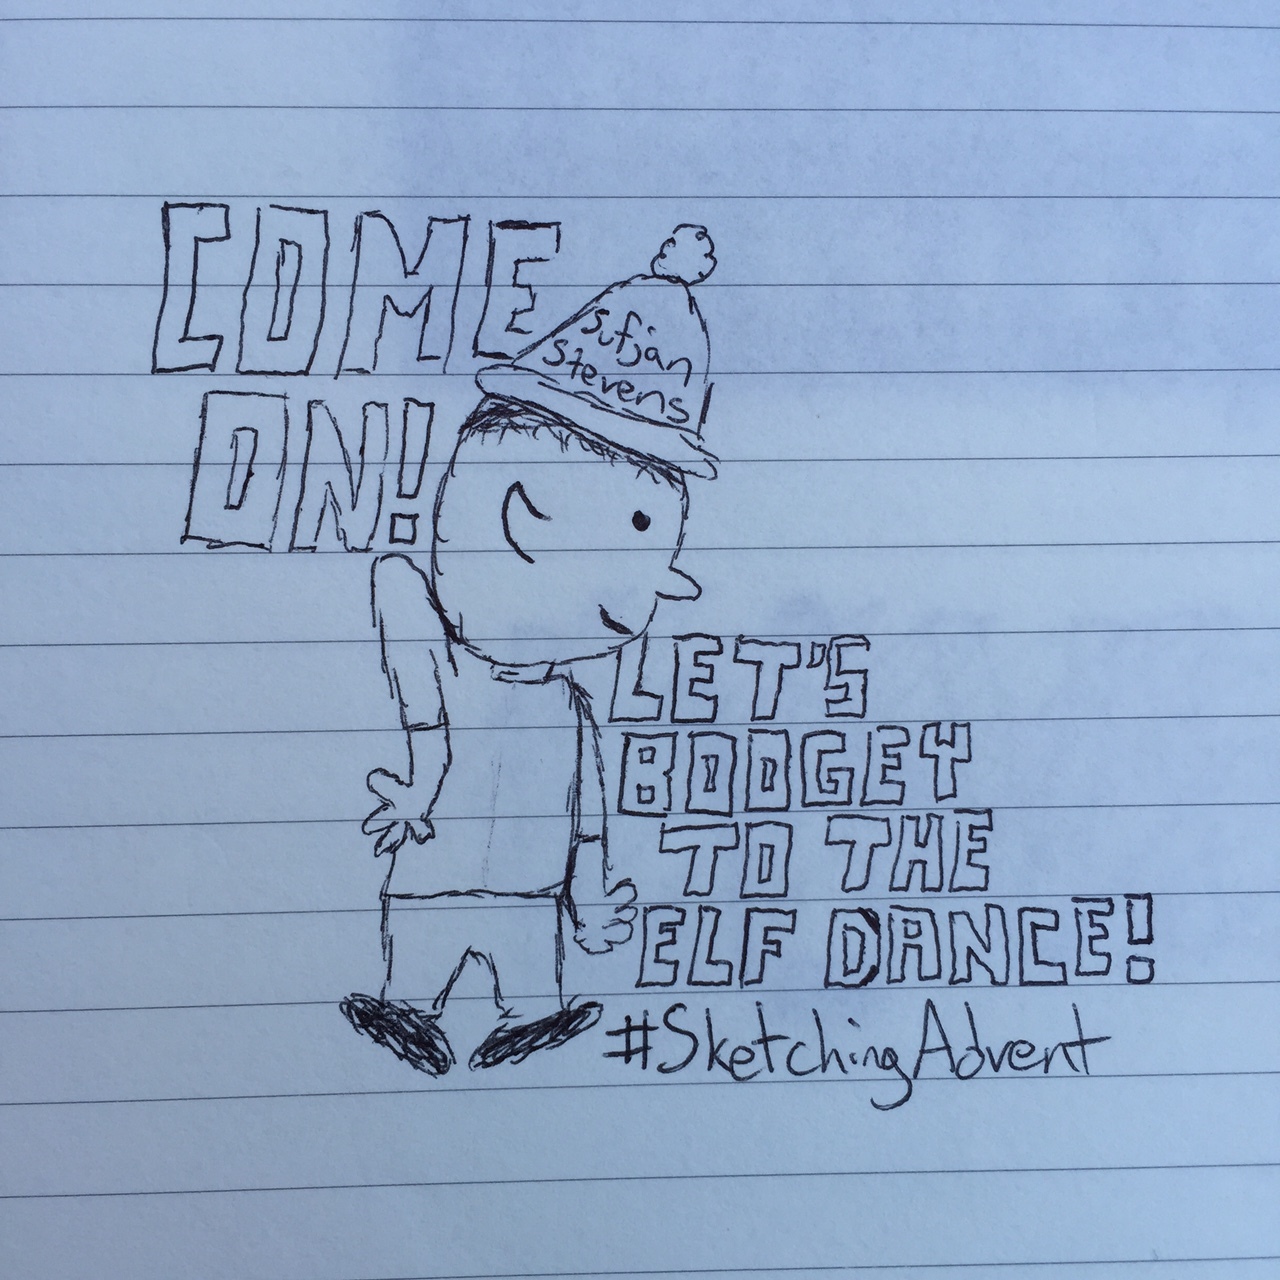 COME
ON!
Sufjan
Stevens
LET'S
BOOGEY
TO THE
ELF DANCE!
#SketchingAdvent